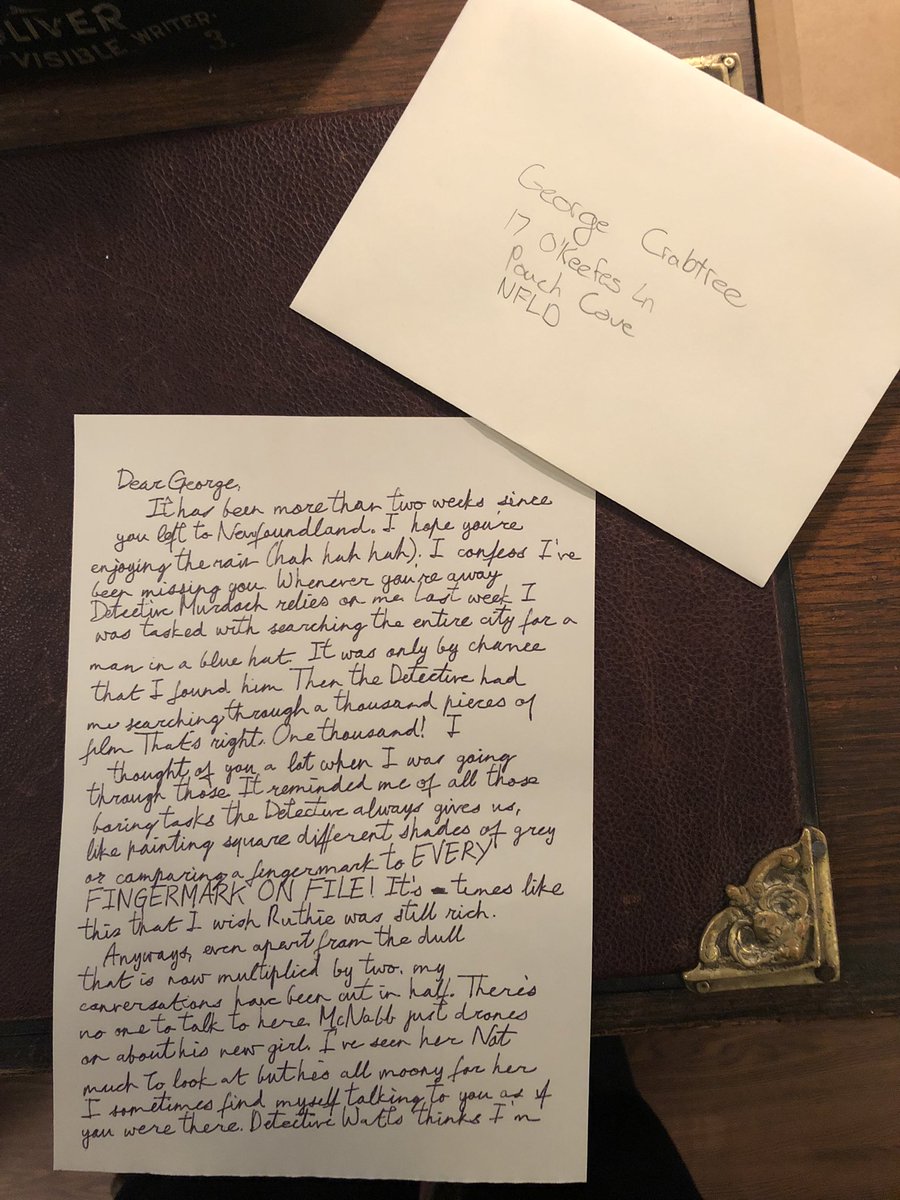 OLIVER
VISIBLE WRITER.
3.
George Crabtree
17 O'Keefes Ln
Pouch Cove
NFLD
Dear George,
It has been more than two weeks since
you left to Newfoundland. I hope you're
enjoying the rain (hah hah hah). I confess I've
been missing you. Whenever you're away
Detective Murdoch relies on me. Last week I
was tasked with searching the entire city for a
man in a blue hat. It was only by chance
that I found him Then the Detective had
me searching through a thousand pieces of
film That's right. One thousand! I
thought of you a lot when I was going
through those It reminded me of all those
boring tasks the Detective always gives us,
like painting square different shades of grey
or comparing a fingermark to EVERY
FINGERMARK ON FILE! It's times like
this that I wish Ruthie was still rich.
Anyways, even apart from the dull
that is now multiplied by two, my
conversations have been cut in half. There's
no one to talk to here McNabb just drones
on about his new girl. I've seen her Not
much to look at but he's all moony for her
I sometimes find myself talking to you as if
you were there. Detective Watts thinks I'm